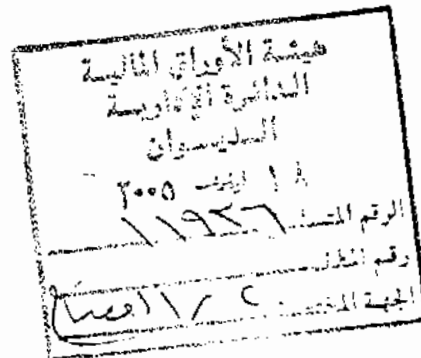 هيئة الأوراق المالية
الدائرة الإدارية
الديوان
١٨ ٢٠٠٥
الرقم المتسلسل ١١٩٢٦
رقم الملف
الجهة المختصة